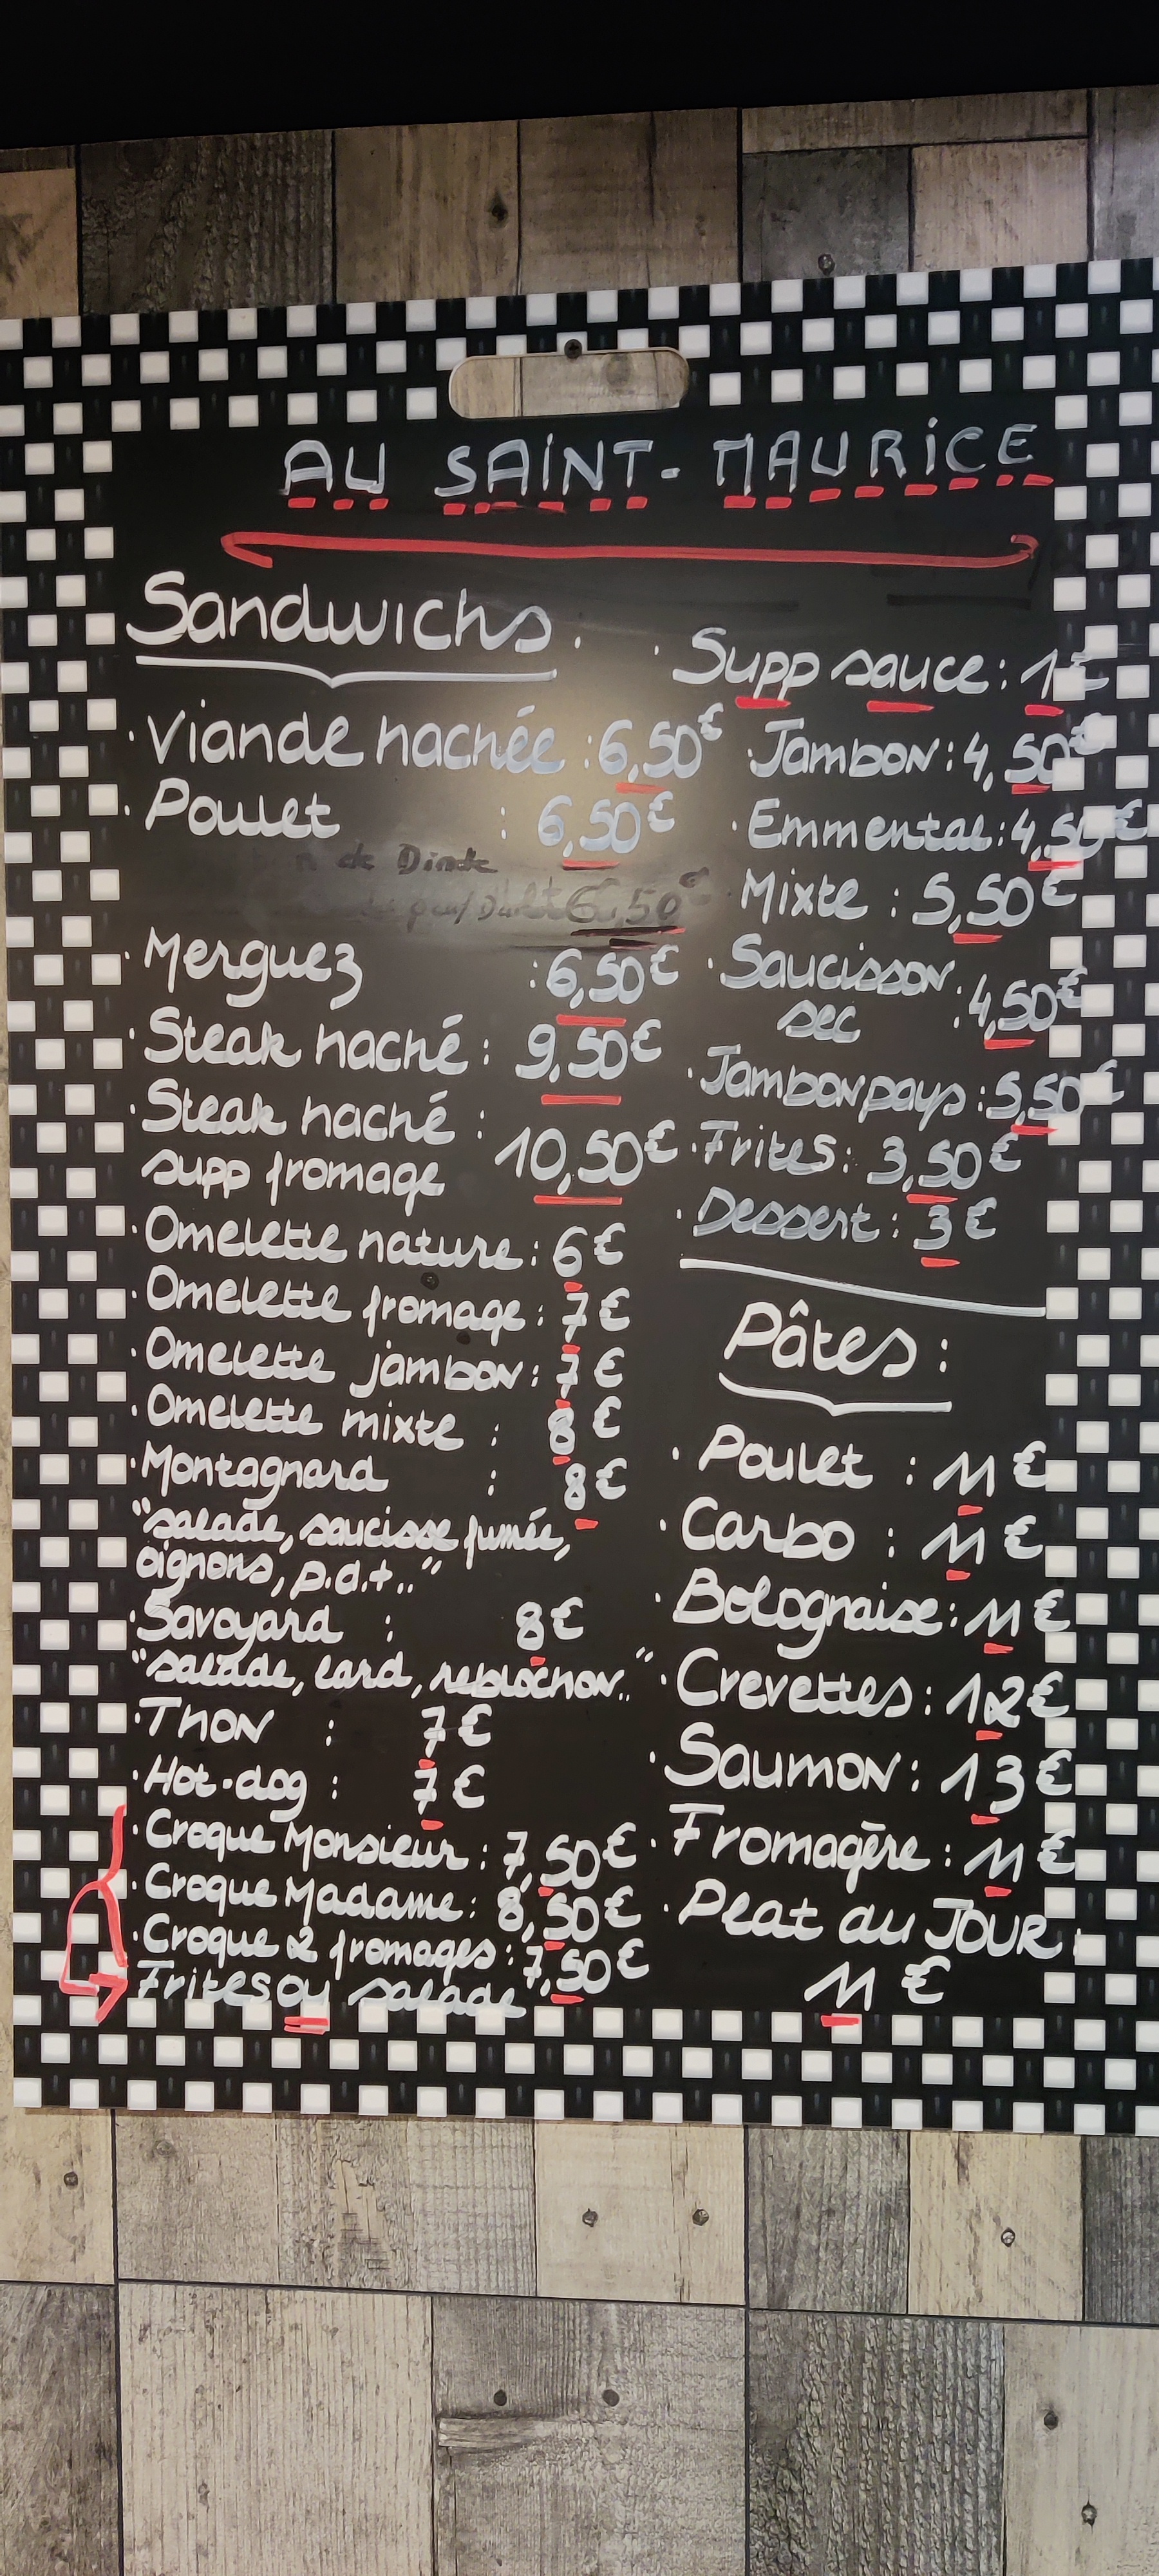 AU SAINT-MAURICE
Sandwichs :
· Viande hachée : 6,50€
· Poulet : 6,50€
de Dinde
6,50€
· Merguez : 6,50€
· Steak haché : 9,50€
· Steak haché :
supp fromage 10,50€
· Omelette nature : 6€
· Omelette fromage : 7€
· Omelette jambon : 7€
· Omelette mixte : 8€
· Montagnard : 8€
"salade, saucisse fumée,
oignons, p.d.t.."
· Savoyard : 8€
"salade, lard, reblochon.."
· Thon : 7€
· Hot-dog : 7€
· Croque Monsieur : 7,50€
· Croque Madame : 8,50€
· Croque 2 fromages : 7,50€
Frites ou salade
· Supp sauce : 1€
· Jambon : 4,50€
· Emmental : 4,50€
Mixte : 5,50€
· Saucisson
sec : 4,50€
· Jambon pays : 5,50€
· Frites : 3,50€
· Dessert : 3€
Pâtes :
· Poulet : 11€
· Carbo : 11€
· Bolognaise : 11€
· Crevettes : 12€
· Saumon : 13€
· Fromagère : 11€
· Plat du JOUR :
11€